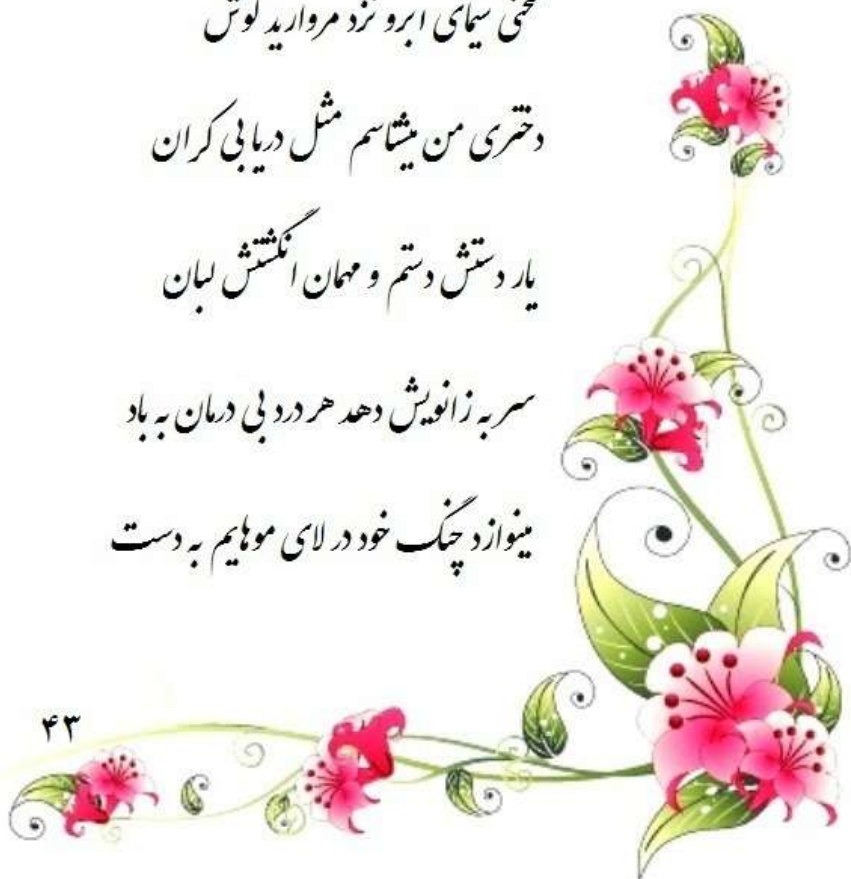 سیمای ابرو نزد مروارید گوش
دختری من میشناسم مثل دریا بی کران
یار دستش دستم و مهمان انگشتش لبان
سر به زانویش دهد هر درد بی درمان به باد
مینوازد چنگ خود در لای موهایم به دست
۴۳